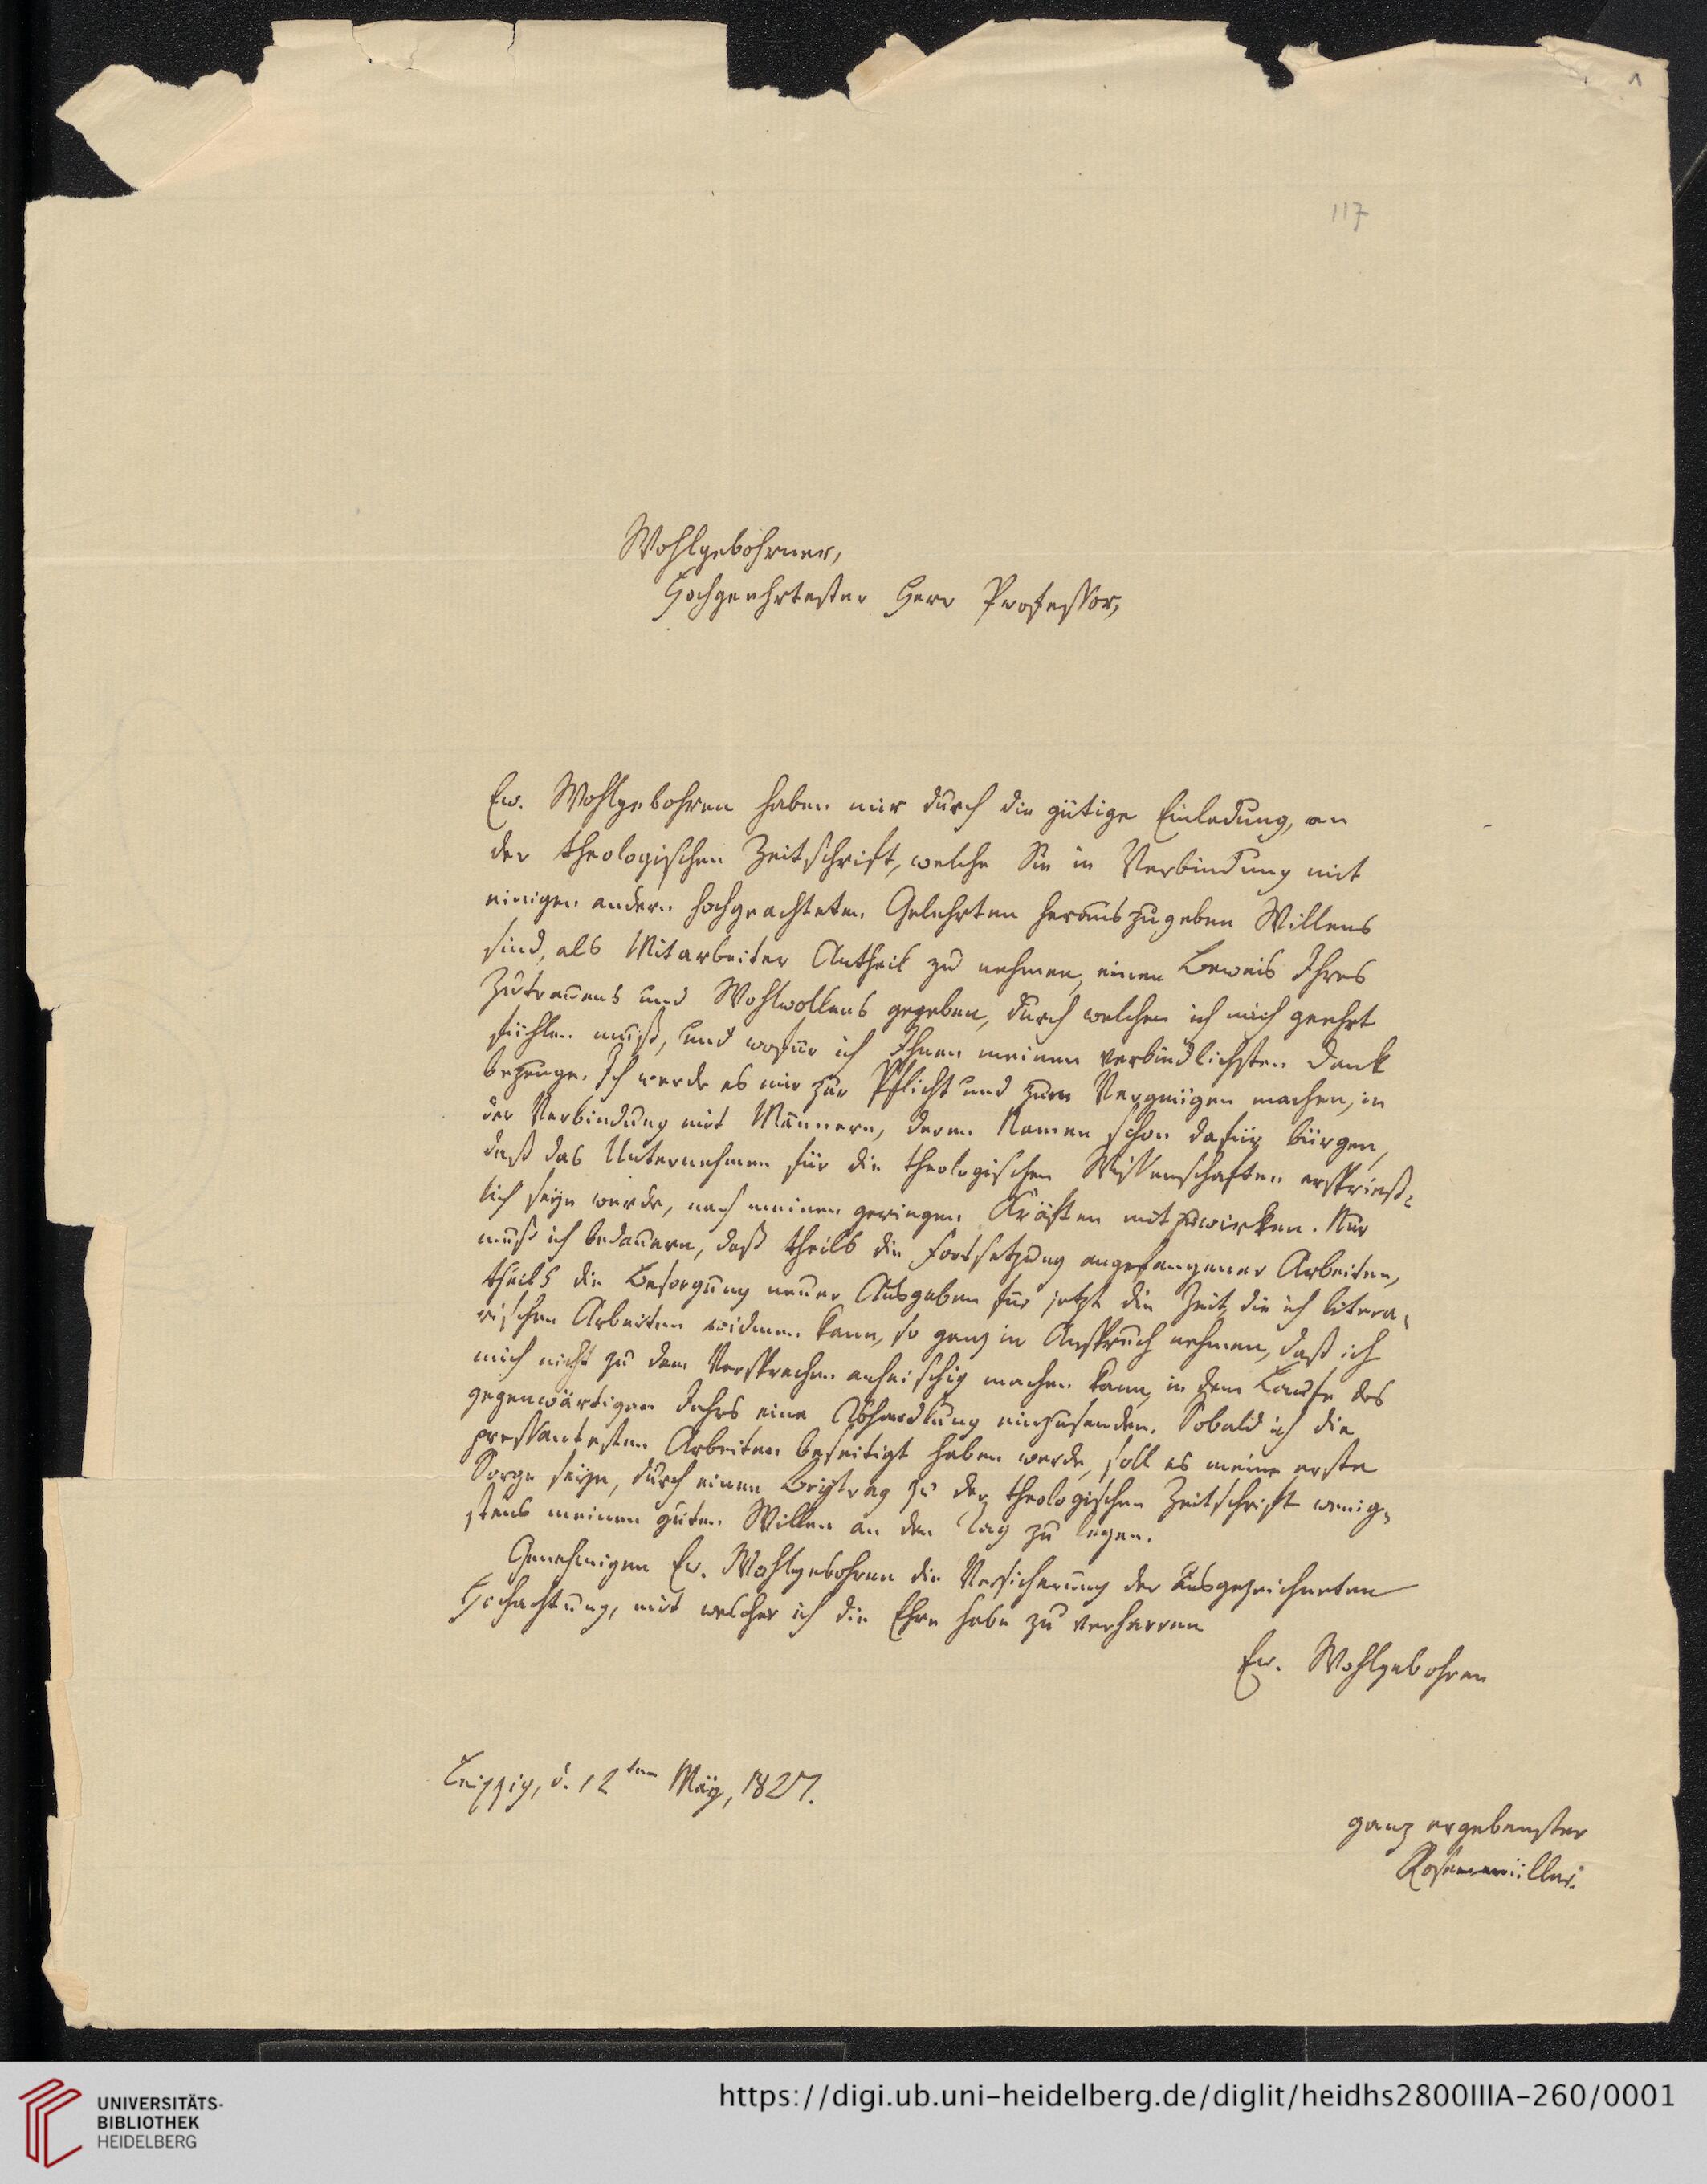 1
117
Wohlgebohrner,
Hochgeehrtester Herr Professor,
Ew. Wohlgebohren haben mir durch die gütige Einladung, an
der theologischen Zeitschrift, welche Sie in Verbindung mit
einigen andern hochgeachteten Gelehrten herauszugeben Willens
sind, als Mitarbeiter Antheil zu nehmen, einen Beweis Ihres
Zutrauens und Wohlwollens gegeben, durch welchen ich mich geehrt
fühlen muß, und wofür ich Ihnen meinen verbindlichsten Dank
bezeuge. Ich werde es mir zur Pflicht und zum Vergnügen machen, in
der Verbindung mit Männern, deren Namen schon dafür bürgen,
daß das Unternehmen für die theologischen Wissenschaften ersprieß-
lich seyn werde, nach meinen geringen Kräften mitzuwirken. Nur
muß ich bedauern, daß theils die Fortsetzung angefangener Arbeiten,
theils die Besorgung neuer Ausgaben für jetzt die Zeit, die ich litera-
rischen Arbeiten widmen kann, so ganz in Anspruch nehmen, daß ich
mich nicht zu dem Versprechen anheischig machen kann, in dem Laufe des
gegenwärtigen Jahrs eine Abhandlung einzusenden. Sobald ich die
pressantesten Arbeiten beseitigt haben werde, soll es meine erste
Sorge seyn, durch einen Beytrag zu der theologischen Zeitschrift wenig-
stens meinen guten Willen an den Tag zu legen.
Genehmigen Ew. Wohlgebohren die Versicherung der ausgezeichneten
Hochachtung, mit welcher ich die Ehre habe zu verharren
Ew. Wohlgebohren
Leipzig, d. 12ten May, 1827.
ganz ergebenster
Rosenmüller.
UNIVERSITÄTS-
BIBLIOTHEK
HEIDELBERG
https://digi.ub.uni-heidelberg.de/diglit/heidhs2800IIIA-260/0001